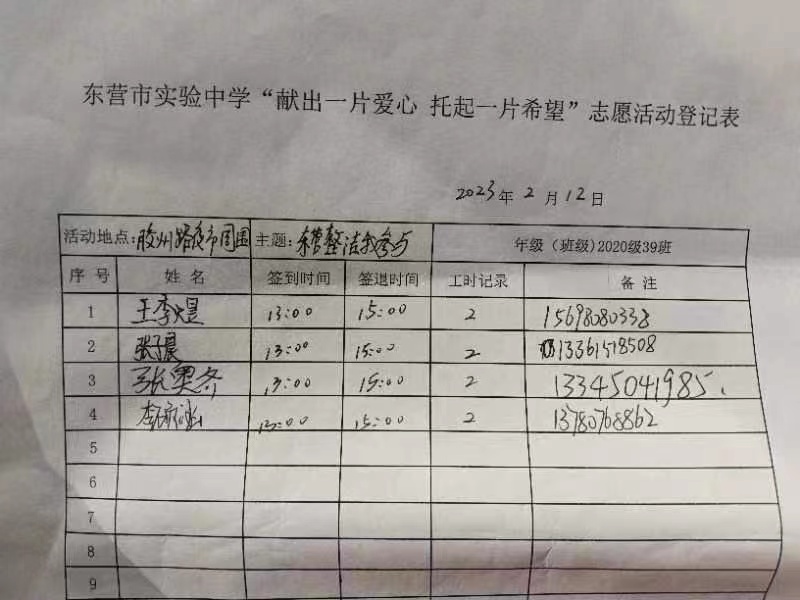 东营市实验中学“献出一片爱心 托起一片希望”志愿活动登记表
2023年 2 月 12 日
活动地点:胶州路夜市周围 主题:东营整洁我参与 年级（班级)2020级39班
序 号 姓 名 签到时间 签退时间 工时记录 备 注
1 王李煜 13:00 15:00 2 15698080338
2 张子晨 13:00 15:00 2 13361518508
3 张奥齐 13:00 15:00 2 13345041985.
4 李 13:00 15:00 2 13780768862
5
6
7
8
9